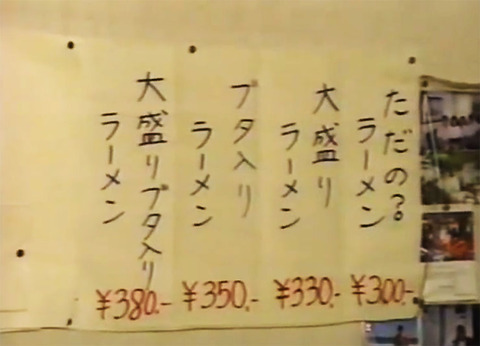 ただの?
ラーメン
¥300.-
大盛り
ラーメン
¥330.-
ブタ入り
ラーメン
¥350.-
大盛りブタ入り
ラーメン
¥380.-